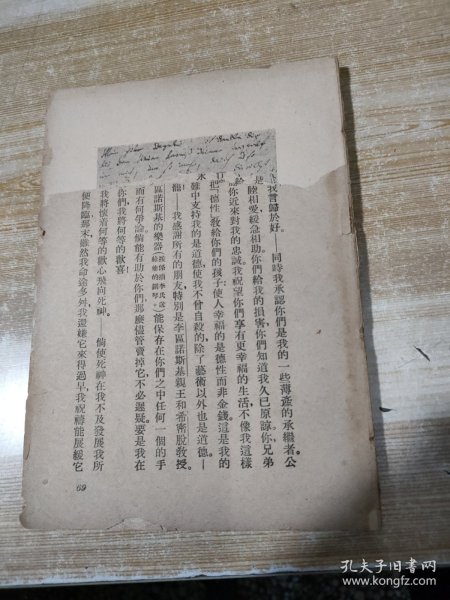 我言歸於好。——同時我承認你們是我的一些薄產的承繼者。公
睦相愛緩急相助。你們給我的損害你們知道我久已原諒你兄弟
你近來對我的忠誠。我祝望你們享有更幸福的生活不像我這樣
把「德性」敎給你們的孩子：使人幸福的是德性而非金錢。這是我的
難中支持我的是道德使我不曾自殺的除了藝術以外也是道德。—
罷——我感謝所有的朋友特別是李區諾斯基親王和希密脫敎授。
區諾斯基的樂器（按係指李氏送給他的鋼琴。）能保存在你們之中任何一個的手
而有何爭論。倘能有助於你們那麼儘管賣掉它不必遲疑。要是我在
你們，我將何等的歡喜！
我將懷着何等的歡心飛向死神。　倘使死神在我不及發展我所
便降臨那末雖然我命途多舛我還嫌它來得過早我祝禱能展緩它
69
孔夫子旧书网
www.kongfz.com